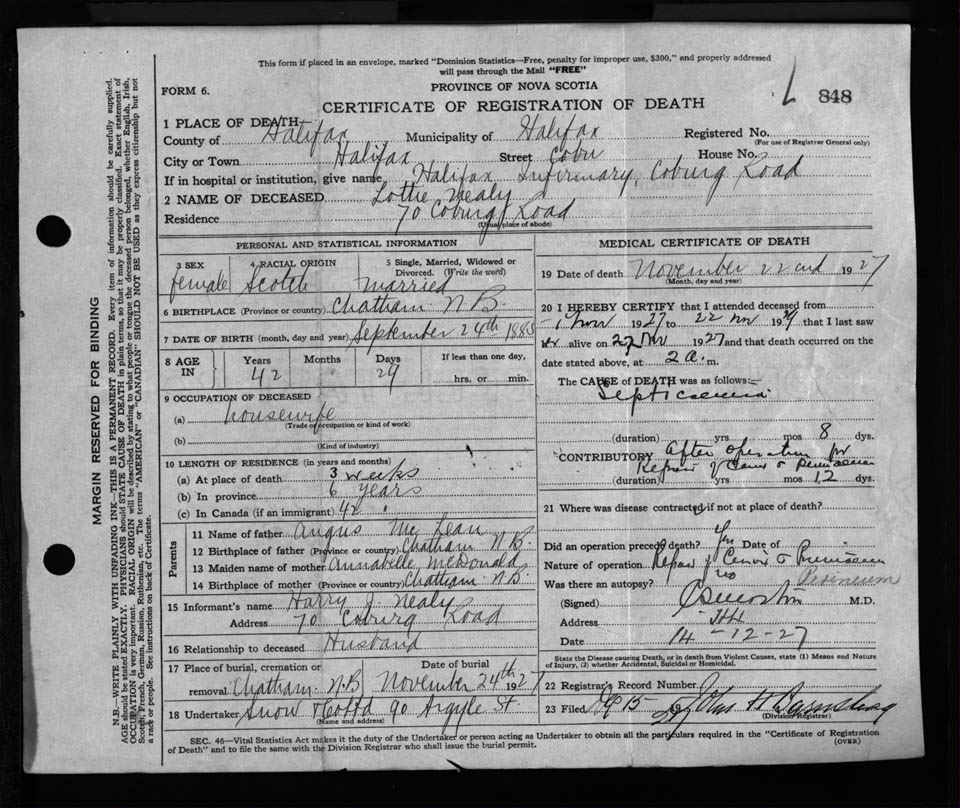 This form if placed in an envelope, marked "Dominion Statistics—Free, penalty for improper use, $300," and properly addressed
will pass through the Mail "FREE"
FORM 6.
PROVINCE OF NOVA SCOTIA
848
CERTIFICATE OF REGISTRATION OF DEATH
1 PLACE OF DEATH
County of Halifax Municipality of Halifax Registered No.
(For use of Registrar General only)
City or Town Halifax Street Cobu House No.
If in hospital or institution, give name Halifax Infirmary, Coburg Road
2 NAME OF DECEASED Lottie Nealy
Residence 70 Coburg Road
(Usual place of abode)
PERSONAL AND STATISTICAL INFORMATION
3 SEX female
4 RACIAL ORIGIN Scotch
5 Single, Married, Widowed or Divorced. (Write the word) Married
6 BIRTHPLACE (Province or country) Chatham N.B.
7 DATE OF BIRTH (month, day and year) September 24th 1885
8 AGE IN Years 42 Months Days 29 If less than one day, hrs. or min.
9 OCCUPATION OF DECEASED
(a) housewife
(Trade, occupation or kind of work)
(b)
(Kind of industry)
10 LENGTH OF RESIDENCE (in years and months)
(a) At place of death 3 weeks
(b) In province 6 years
(c) In Canada (if an immigrant) 42
Parents
11 Name of father Angus McLean
12 Birthplace of father (Province or country) Chatham N.B.
13 Maiden name of mother Annabelle McDonald
14 Birthplace of mother (Province or country) Chatham N.B.
15 Informant's name Harry J. Nealy
Address 70 Coburg Road
16 Relationship to deceased Husband
17 Place of burial, cremation or removal Chatham N.B. Date of burial November 24th 1927
18 Undertaker Snow & Co Ltd 90 Argyle St.
(Name and address)
MEDICAL CERTIFICATE OF DEATH
19 Date of death November 22nd 1927
(Month, day and year)
20 I HEREBY CERTIFY that I attended deceased from
1 Nov 1927 to 22 Nov 19 that I last saw
alive on 22 Nov 1927 and that death occurred on the
date stated above, at 2 a. m.
The CAUSE of DEATH was as follows:—
Septicaemia
(duration) yrs mos 8 dys.
CONTRIBUTORY After operation for
Repair of Cervix & Perineum
(duration) yrs mos 12 dys.
21 Where was disease contracted if not at place of death?
Did an operation precede death? Yes Date of
Nature of operation Repair of Cervix & Perineum
Was there an autopsy? no
(Signed) M.D.
Address
Date 14-12-27
State the Disease causing Death, or in death from Violent Causes, state (1) Means and Nature
of Injury, (2) whether Accidental, Suicidal or Homicidal.
22 Registrar's Record Number
23 Filed 15 19 27 John H
(Division Registrar)
SEC. 46—Vital Statistics Act makes it the duty of the Undertaker or person acting as Undertaker to obtain all the particulars required in the "Certificate of Registration
of Death" and to file the same with the Division Registrar who shall issue the burial permit.
(OVER)
MARGIN RESERVED FOR BINDING
N.B.—WRITE PLAINLY WITH UNFADING INK—THIS IS A PERMANENT RECORD. Every item of information should be carefully supplied.
AGE should be stated EXACTLY. PHYSICIANS should STATE CAUSE OF DEATH in plain terms, so that it may be properly classified. Exact statement of
OCCUPATION is very important. RACIAL ORIGIN will be described by stating to what people or tongue the deceased person belonged, whether English, Irish,
Scotch, French, German, Russian, Ruthenian, etc. The terms "AMERICAN" or "CANADIAN" SHOULD NOT BE USED as they express citizenship but not
a race or people. See instructions on back of Certificate.